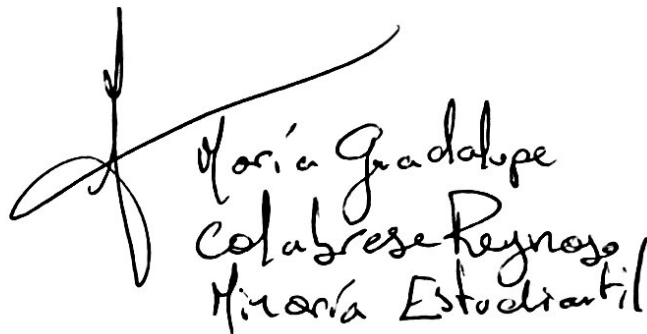 María Guadalupe
Calabrese Reynoso
Minoría Estudiantil